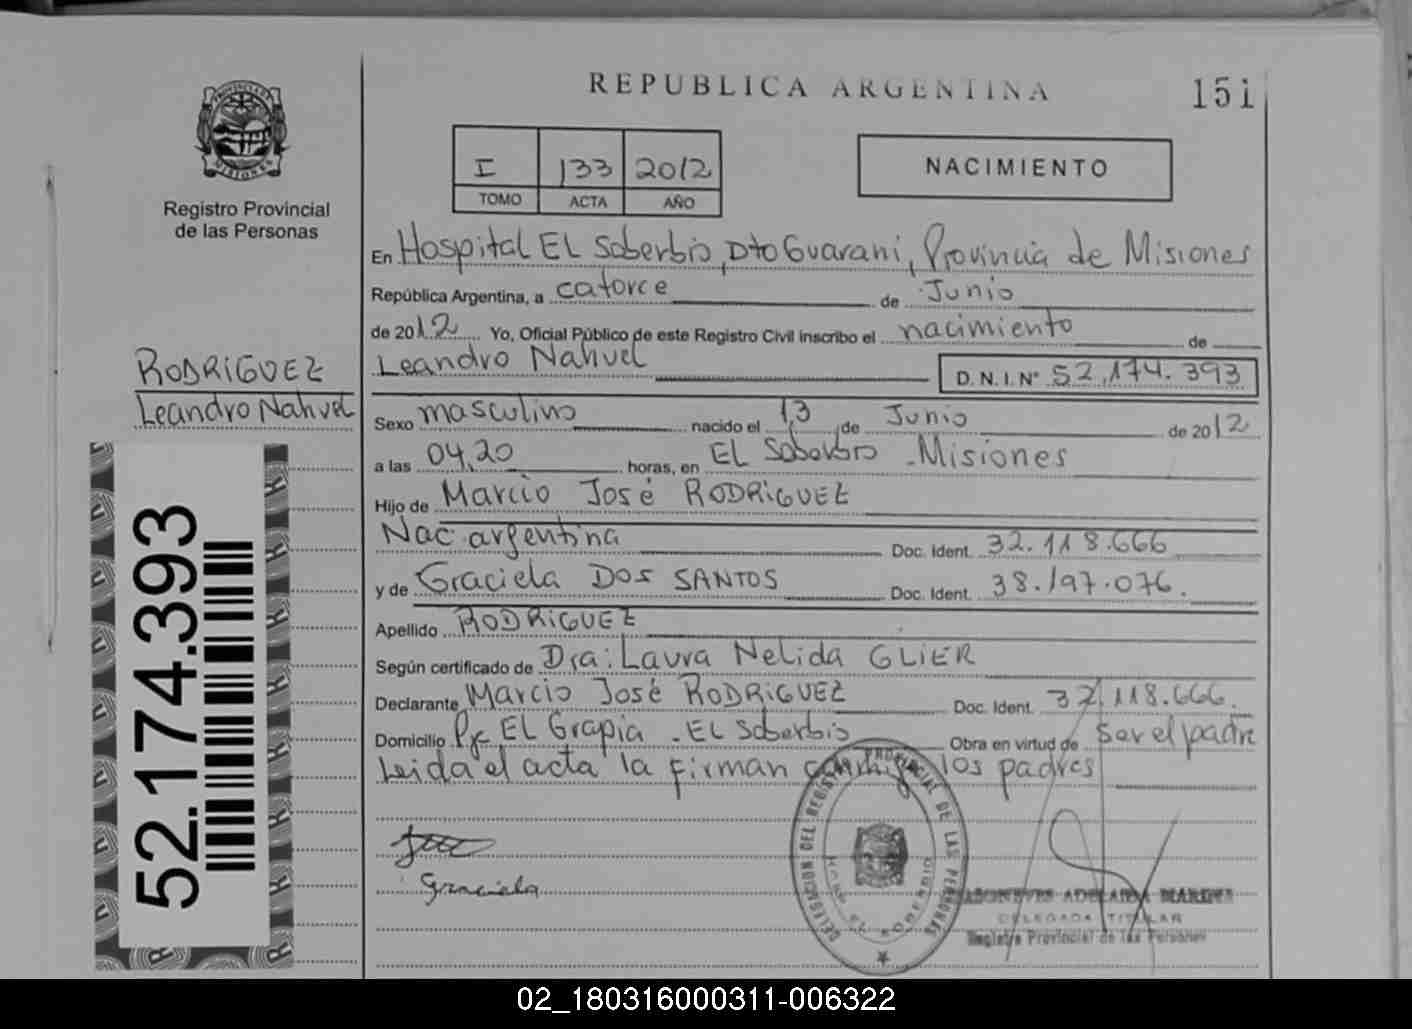 REPUBLICA ARGENTINA
151
I 133 2012
TOMO ACTA AÑO
NACIMIENTO
PROVINCIA DE MISIONES
Registro Provincial
de las Personas
En Hospital EL Soberbio, Dto Guarani, Provincia de Misiones
República Argentina, a catorce de Junio
de 2012 Yo, Oficial Público de este Registro Civil inscribo el nacimiento de
Leandro Nahuel D.N.I. Nº 52.174.393
RODRIGUEZ
Leandro Nahuel
Sexo masculino nacido el 13 de Junio de 2012
a las 04,20 horas, en EL Soberbio - Misiones
Hijo de Marcio José RODRIGUEZ
Nac. argentina Doc. Ident. 32.118.666
y de Graciela DOS SANTOS Doc. Ident. 38.197.076.
Apellido RODRIGUEZ
Según certificado de Dra: Laura Nelida GLIER
Declarante Marcio José RODRIGUEZ Doc. Ident. 32.118.666.
Domicilio Pje EL Grapia - EL Soberbio Obra en virtud de Ser el padre
Leida el acta la firman conmigo los padres
Graciela
DELEGACION DEL REGISTRO PROVINCIAL DE LAS PERSONAS
EL SOBERBIO
ADELAIDA
DELEGADA TITULAR
Registro Provincial de las Personas
52.174.393
02_180316000311-006322